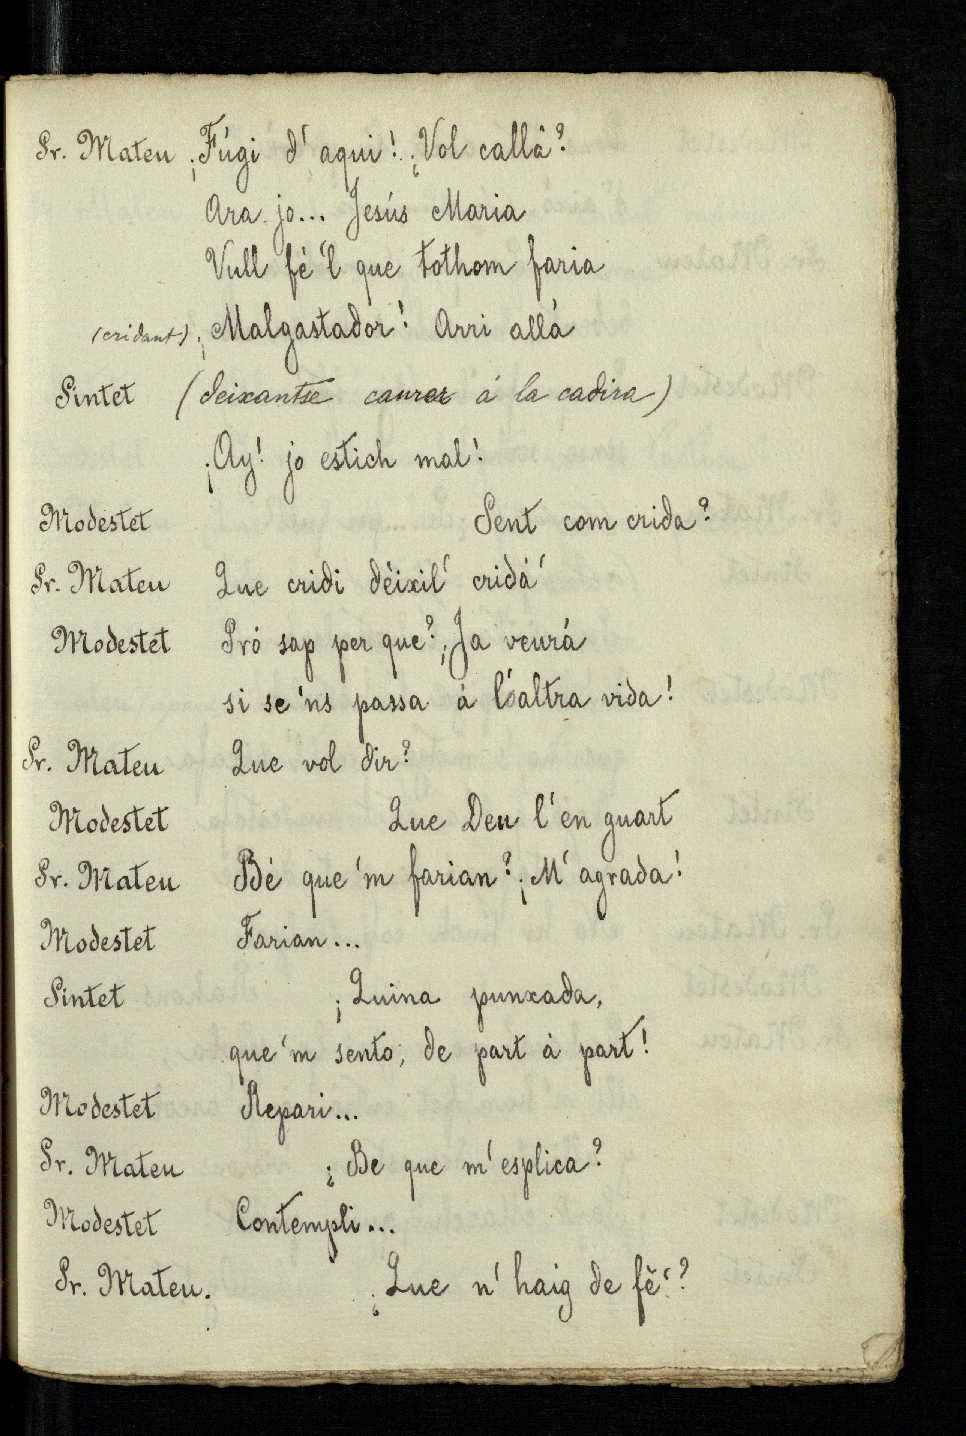 Sr. Mateu ¡Fúgi d' aqui! ¿Vol callá?
Ara jo... Jesús Maria
Vull fé 'l que tothom faria
(cridant) ¡Malgastador! Arri allá
Sintet (deixantse caurer á la cadira)
¡Ay! jo estich mal!
Modestet Sent com crida?
Sr. Mateu Que cridi déixil' cridá'
Modestet Pró sap per que? ¡Ja veurá
si se 'ns passa á l'altra vida!
Sr. Mateu Que vol dir?
Modestet Que Deu l' en guart
Sr. Mateu Bé que 'm farian? ¡M' agrada!
Modestet Farian...
Sintet ¡Quina punxada,
que 'm sento, de part á part!
Modestet Repari...
Sr. Mateu ¿Be que m' esplica?
Modestet Contempli...
Sr. Mateu. ¿Que n' haig de fé'?